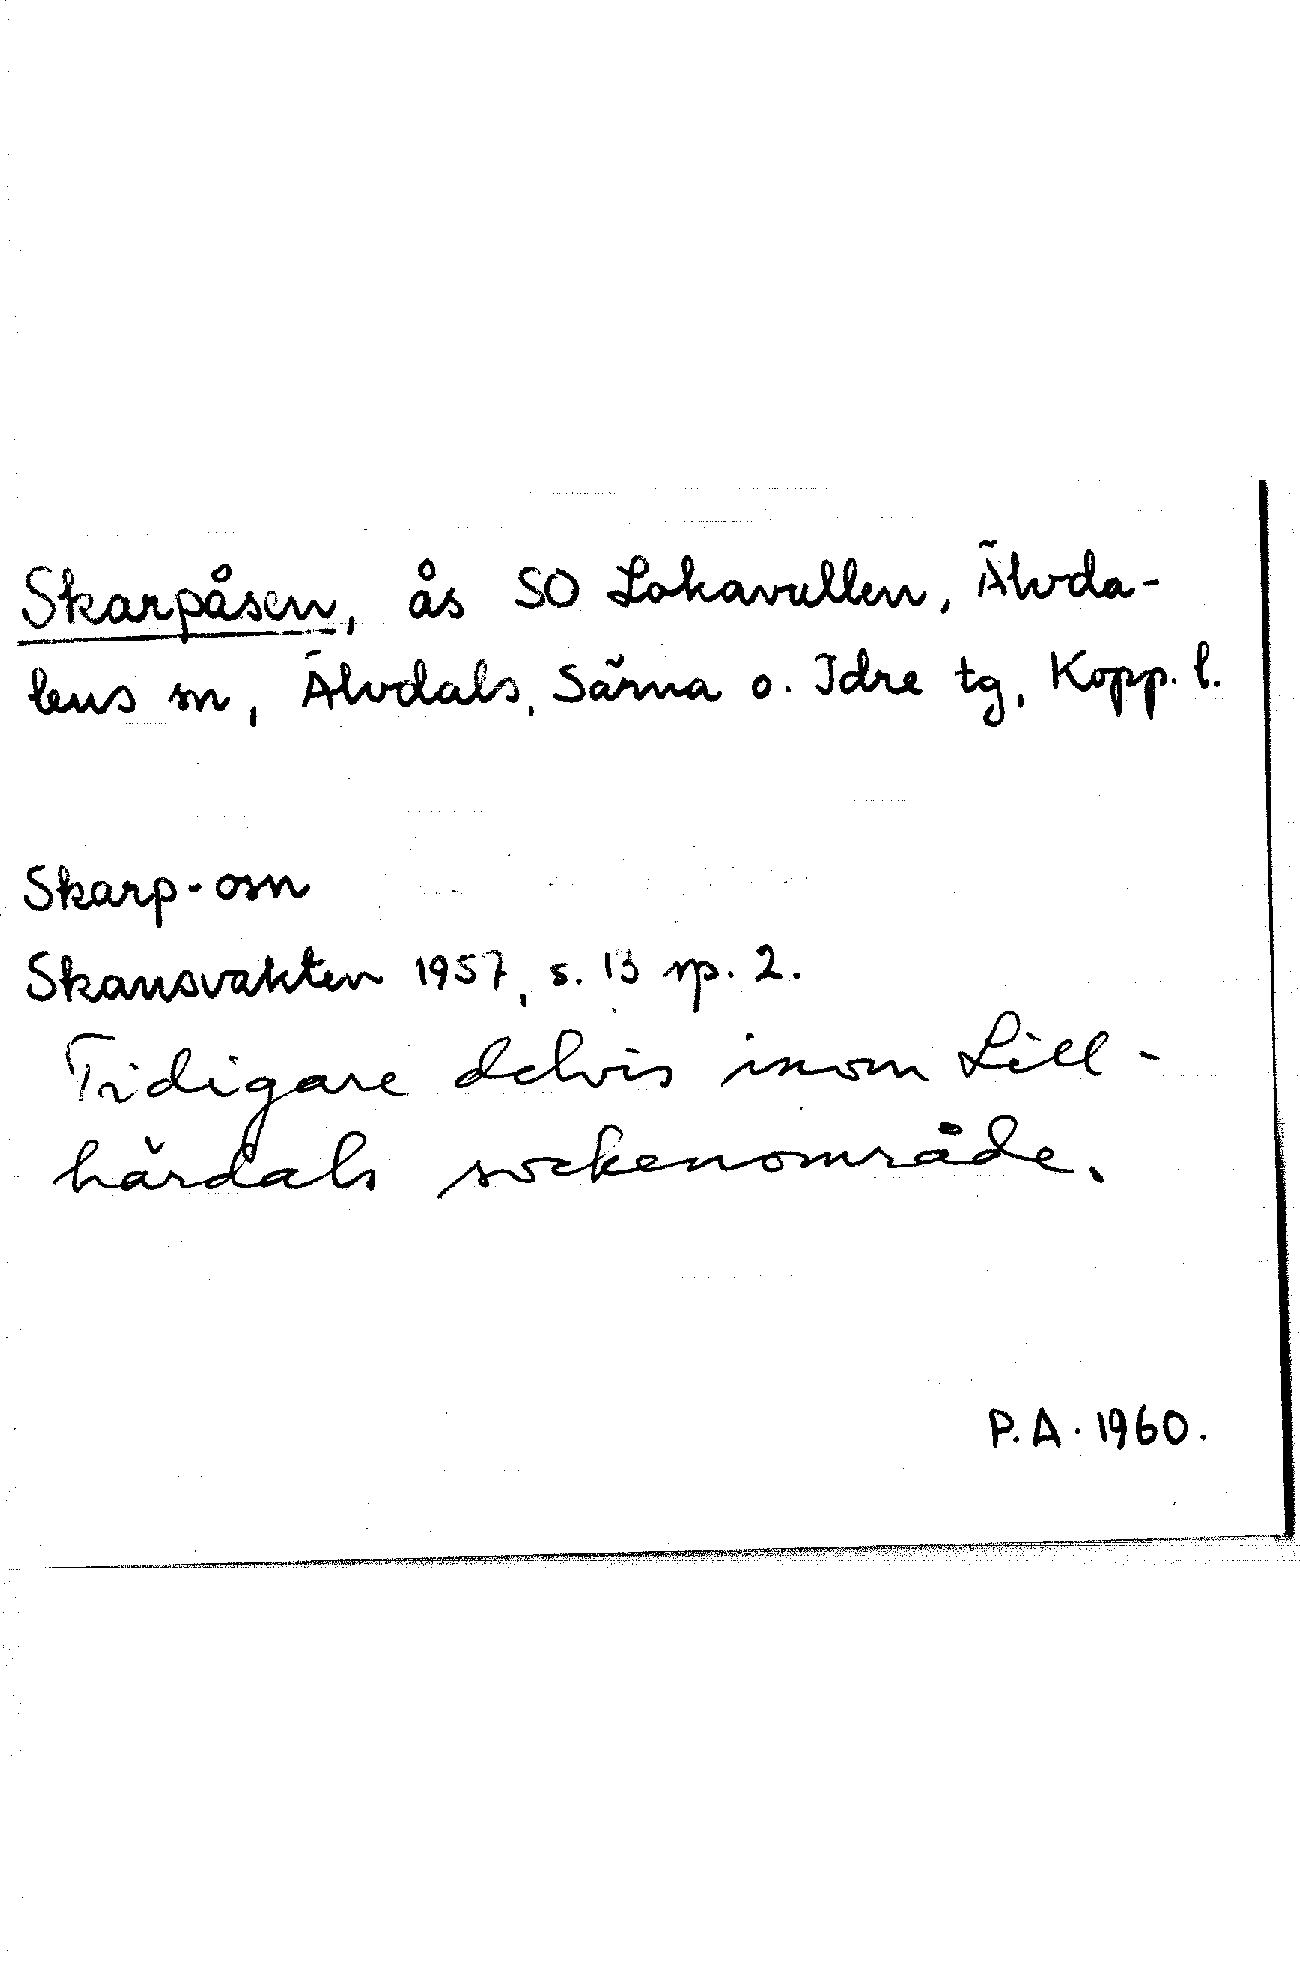 Skarpåsen, ås SO Lokavallen, Älvda-
lens sn, Älvdals, Särna o. Idre tg, Kopp. l.
Skarp-osn
Skansvakten 1957, s. 13 sp. 2.
Tidigare delvis inom Lill-
härdals sockenområde.
P.A. 1960.